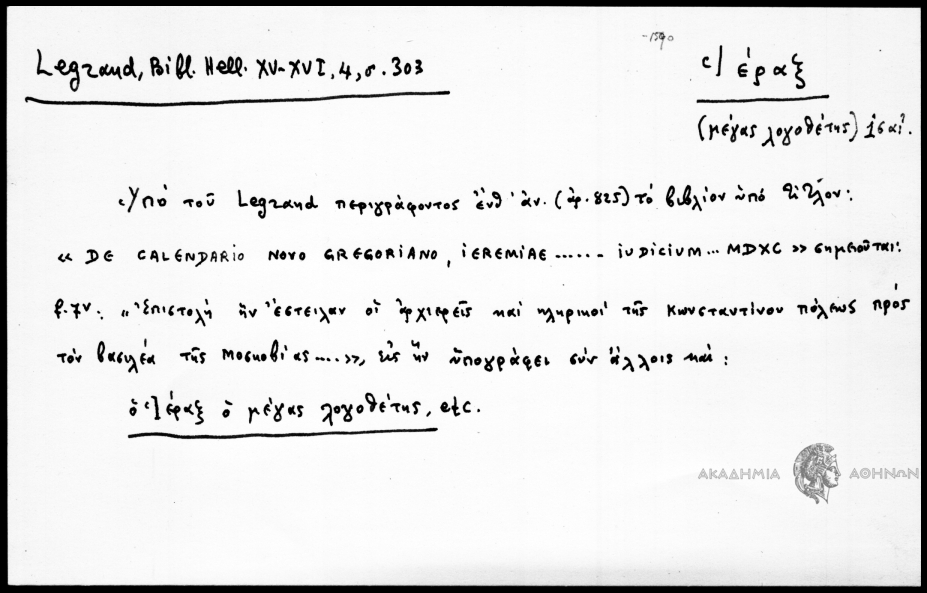 -1590
Legrand, Bibl. Hell. XV-XVI, 4, σ. 303
Ἱέραξ
(μέγας λογοθέτης)
Ὑπό τοῦ Legrand περιγράφοντος ἐνθ' ἀν. (ἀρ. 825) τό βιβλίον ὑπό τίτλον:
« DE CALENDARIO NOVO GREGORIANO, IEREMIAE ...... IUDICIUM ... MDXC » σημειοῦται:
f. 7v: « Ἐπιστολή ἥν ἔστειλαν οἱ ἀρχιερεῖς καί κληρικοί τῆς Κωνσταντίνου πόλεως πρός
τόν βασιλέα τῆς Μοσκοβίας .... », εἰς ἥν ὑπογράφει σύν ἄλλοις καί:
ὁ Ἱέραξ ὁ μέγας λογοθέτης, etc.
ΑΚΑΔΗΜΙΑ ΑΘΗΝΩΝ